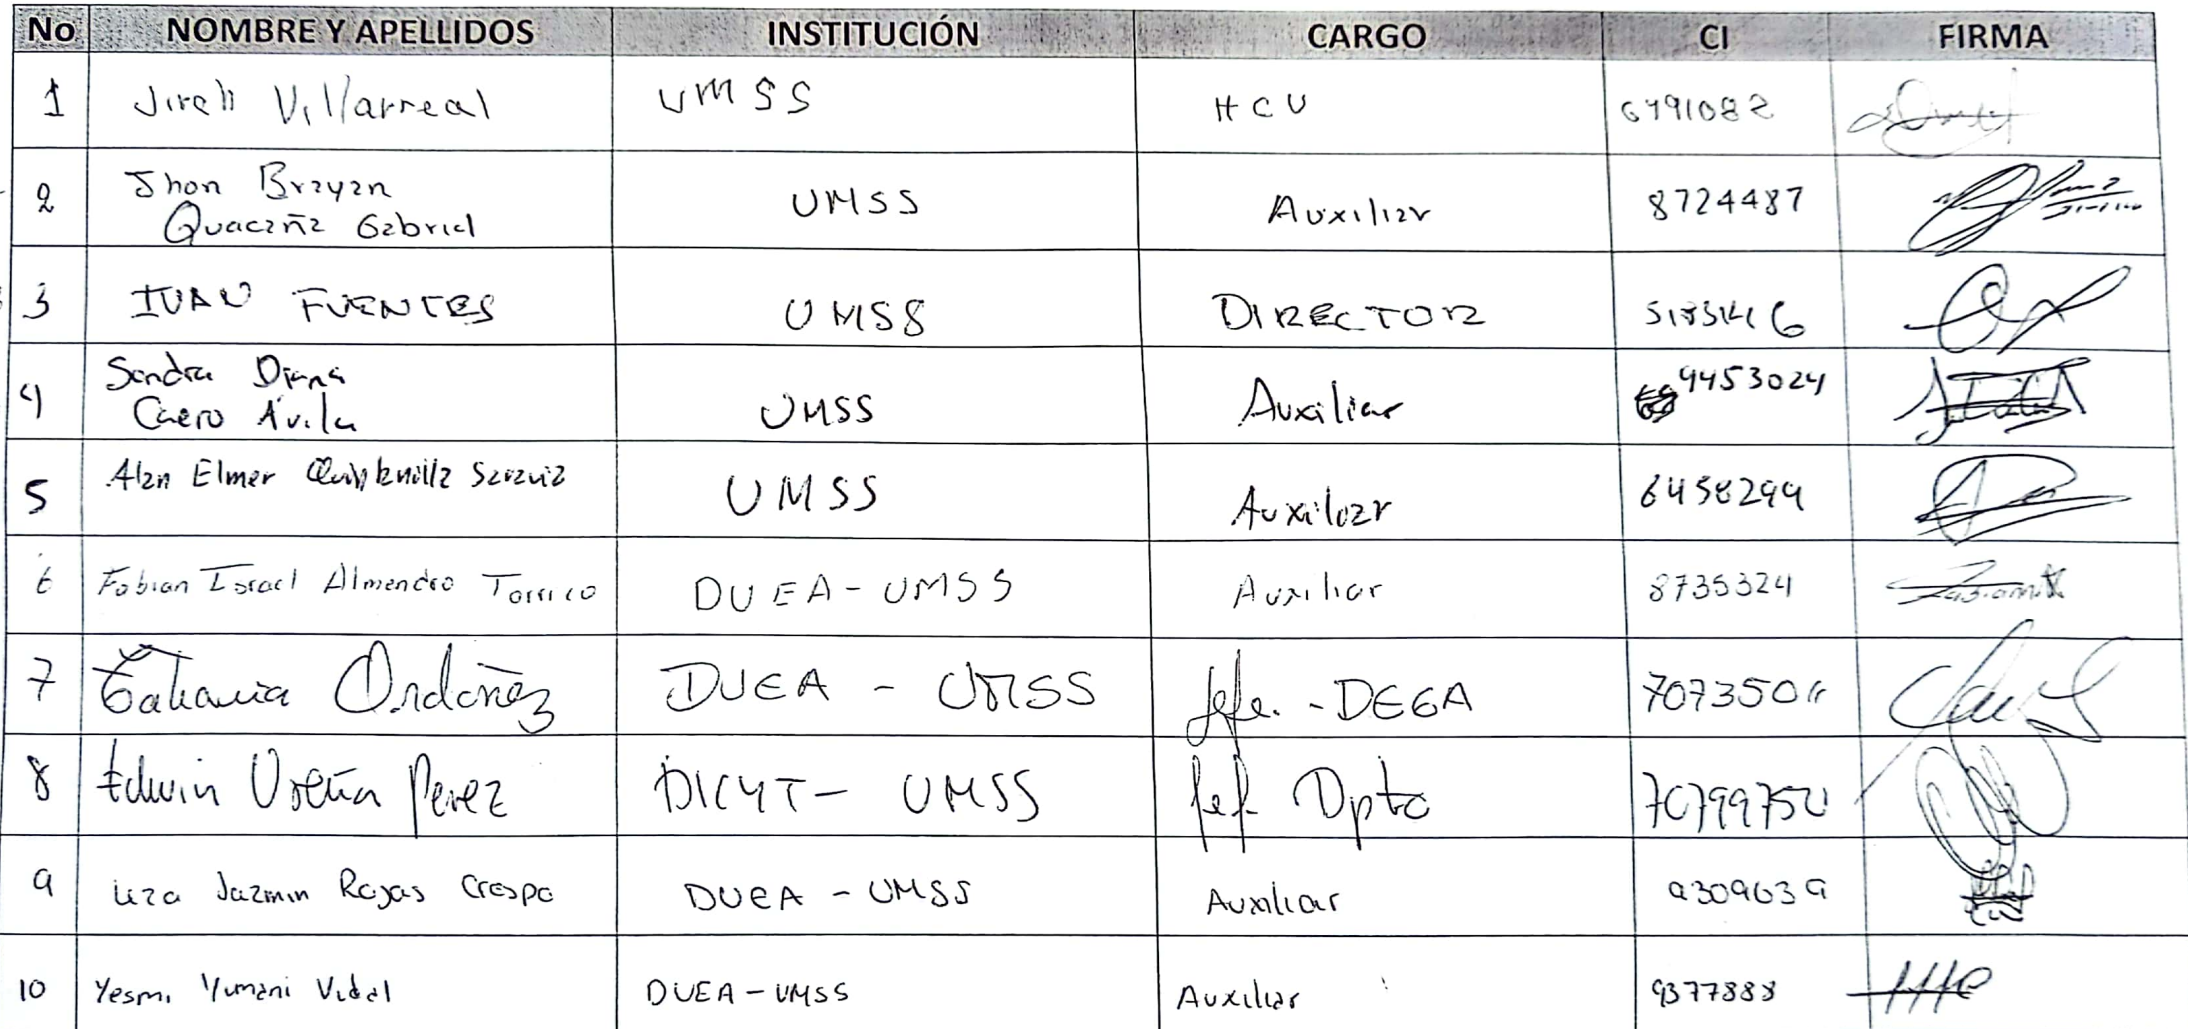 No NOMBRE Y APELLIDOS INSTITUCIÓN CARGO CI FIRMA
1 Jireh Villarreal UMSS HCU 6491082
2 Jhon Brayan Quacaña Gabriel UMSS Auxiliar 8724487
3 IVAN FUENTES UMSS DIRECTOR
4 Sandra Diana Caero Avila UMSS Auxiliar 9453024
5 Alan Elmer UMSS Auxiliar 6458299
6 Fabian Israel Almendro Torrico DUEA-UMSS Auxiliar 8735324
7 Tatiana Ordoñez DUEA - UMSS Jefe. - DEGA
8 Edwin Ureña Perez DICYT- UMSS Jef. Dpto
9 Liza Jazmin Rojas Crespo DUEA - UMSS Auxiliar 9309639
10 Yesmi Yumani Vidal DUEA-UMSS Auxiliar 9377888